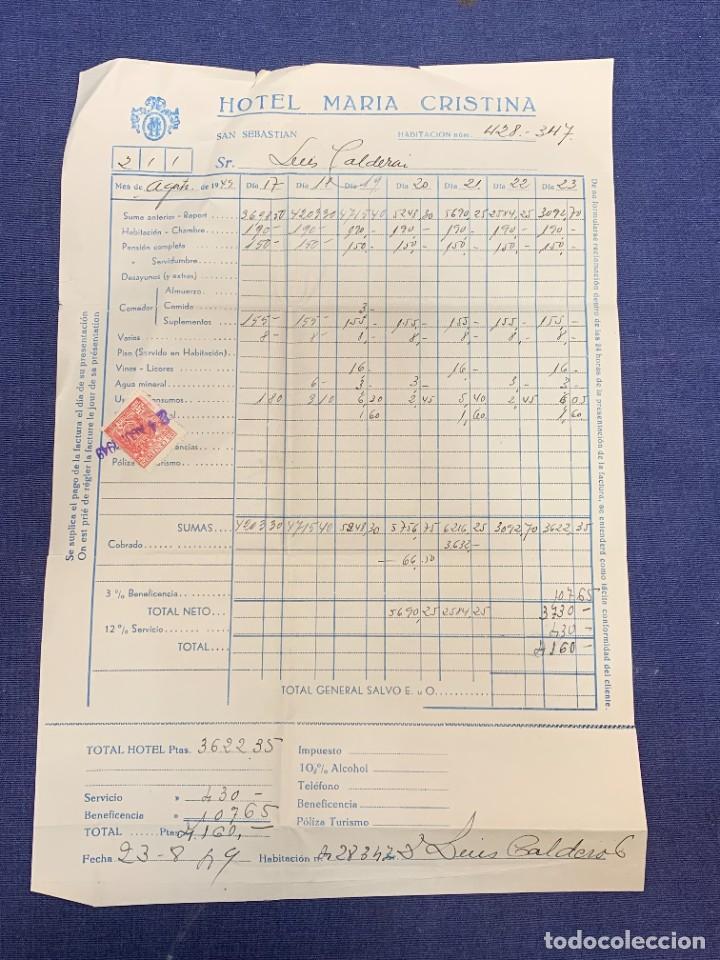 HOTEL MARIA CRISTINA
SAN SEBASTIAN HABITACION núm. 428.-347.
2 1 1 Sr. Luis Calderai
Mes de Agosto de 1949 Día 17 Día 18 Día 19 Día 20 Día 21 Día 22 Día 23
Suma anterior - Report 3698,50 4203,30 4715,40 5248,30 5690,25 2584,25 3092,70
Habitación - Chambre 190- 190- 190,- 190,- 190,- 190,- 190,-
Pensión completa 150- 150- 150,- 150,- 150,- 150,- 150,-
" Servidumbre
Desayunos (y extras)
Comedor
Almuerzo
Comida 3-
Suplementos 155- 155- 155,- 155,- 155,- 155,- 155,-
Varios 8- 8- 8,- 8,- 8,- 8,- 8,-
Piso (Servido en Habitación)
Vinos - Licores 16- 16- 16-
Agua mineral 6- 3,- 3,- 3,- 3,-
Consumos 1 80 3 10 6,30 2,45 5,40 2,45 6 05
1,60 1,60 1,60
Póliza Turismo
SUMAS 4203,30 4715,40 5248,30 5756,75 6216,25 3092,70 3622,35
Cobrado 3632,-
- 66,50
3 % Beneficencia 107,65
TOTAL NETO 5690,25 2584,25 3730-
12 % Servicio 430-
TOTAL 4160-
TOTAL GENERAL SALVO E. u O.
Se suplica el pago de la factura el día de su presentación
On est prié de régler la facture le jour de sa présentation
De no formularse reclamación dentro de las 24 horas de la presentación de la factura, se entenderá como tácita conformidad del cliente.
TOTAL HOTEL Ptas. 3622,35
Servicio » 430-
Beneficencia » 107,65
TOTAL Ptas. 4160,-
Impuesto
10% Alcohol
Teléfono
Beneficencia
Póliza Turismo
Fecha 23-8-49 Habitación Luis Caldero
todocoleccion.net